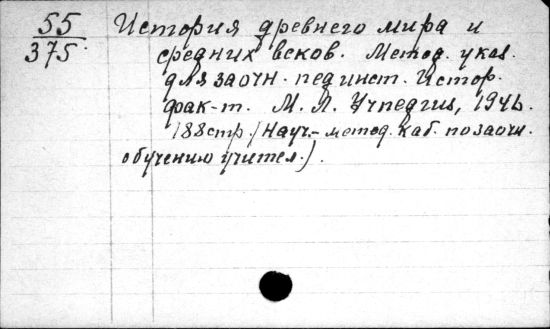 55
375.
История древнего мира и
средних веков. Метод. указ.
для заочн. пединст. Истор.
фак-т. М. Л. Учпедгиз, 1946.
188стр. (Науч.-метод. каб. по заочн.
обучению учител.).